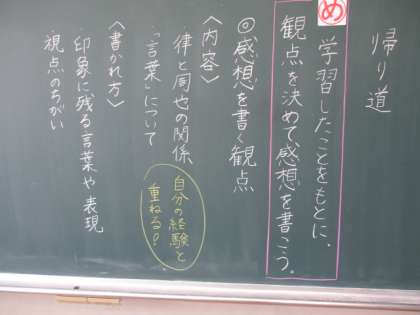 帰り道
め
学習したことをもとに、
観点を決めて感想を書こう。
◎感想を書く観点
〈内容〉
律と周也の関係
「言葉」について
自分の経験と
重ねる!
〈書かれ方〉
印象に残る言葉や表現
視点のちがい